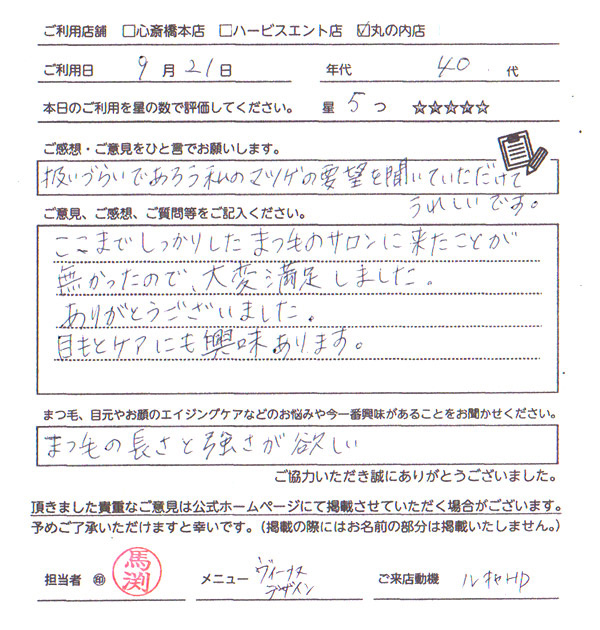 ご利用店舗 □心斎橋本店 □ハービスエント店 ☑丸の内店
ご利用日 9 月 21 日 年代 40 代
本日のご利用を星の数で評価してください。 星 5 つ ☆☆☆☆☆
ご感想・ご意見をひと言でお願いします。
扱いづらいであろう私のマツゲの要望を聞いていただけて
うれしいです。
ご意見、ご感想、ご質問等をご記入ください。
ここまでしっかりしたまつ毛のサロンに来たことが
無かったので、大変満足しました。
ありがとうございました。
目もとケアにも興味あります。
まつ毛、目元やお顔のエイジングケアなどのお悩みや今一番興味があることをお聞かせください。
まつ毛の長さと強さが欲しい
ご協力いただき誠にありがとうございました。
頂きました貴重なご意見は公式ホームページにて掲載させていただく場合がございます。
予めご了承いただけますと幸いです。（掲載の際にはお名前の部分は掲載いたしません。）
担当者 ㊞ 馬渕 メニュー ヴィーナス
デザイン
ご来店動機 ルキャHP